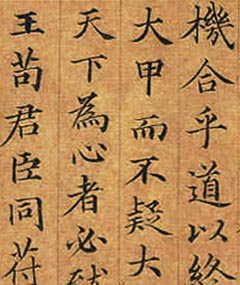 機合乎道以終
大甲而不疑大
天下為心者必
王苟君臣同符